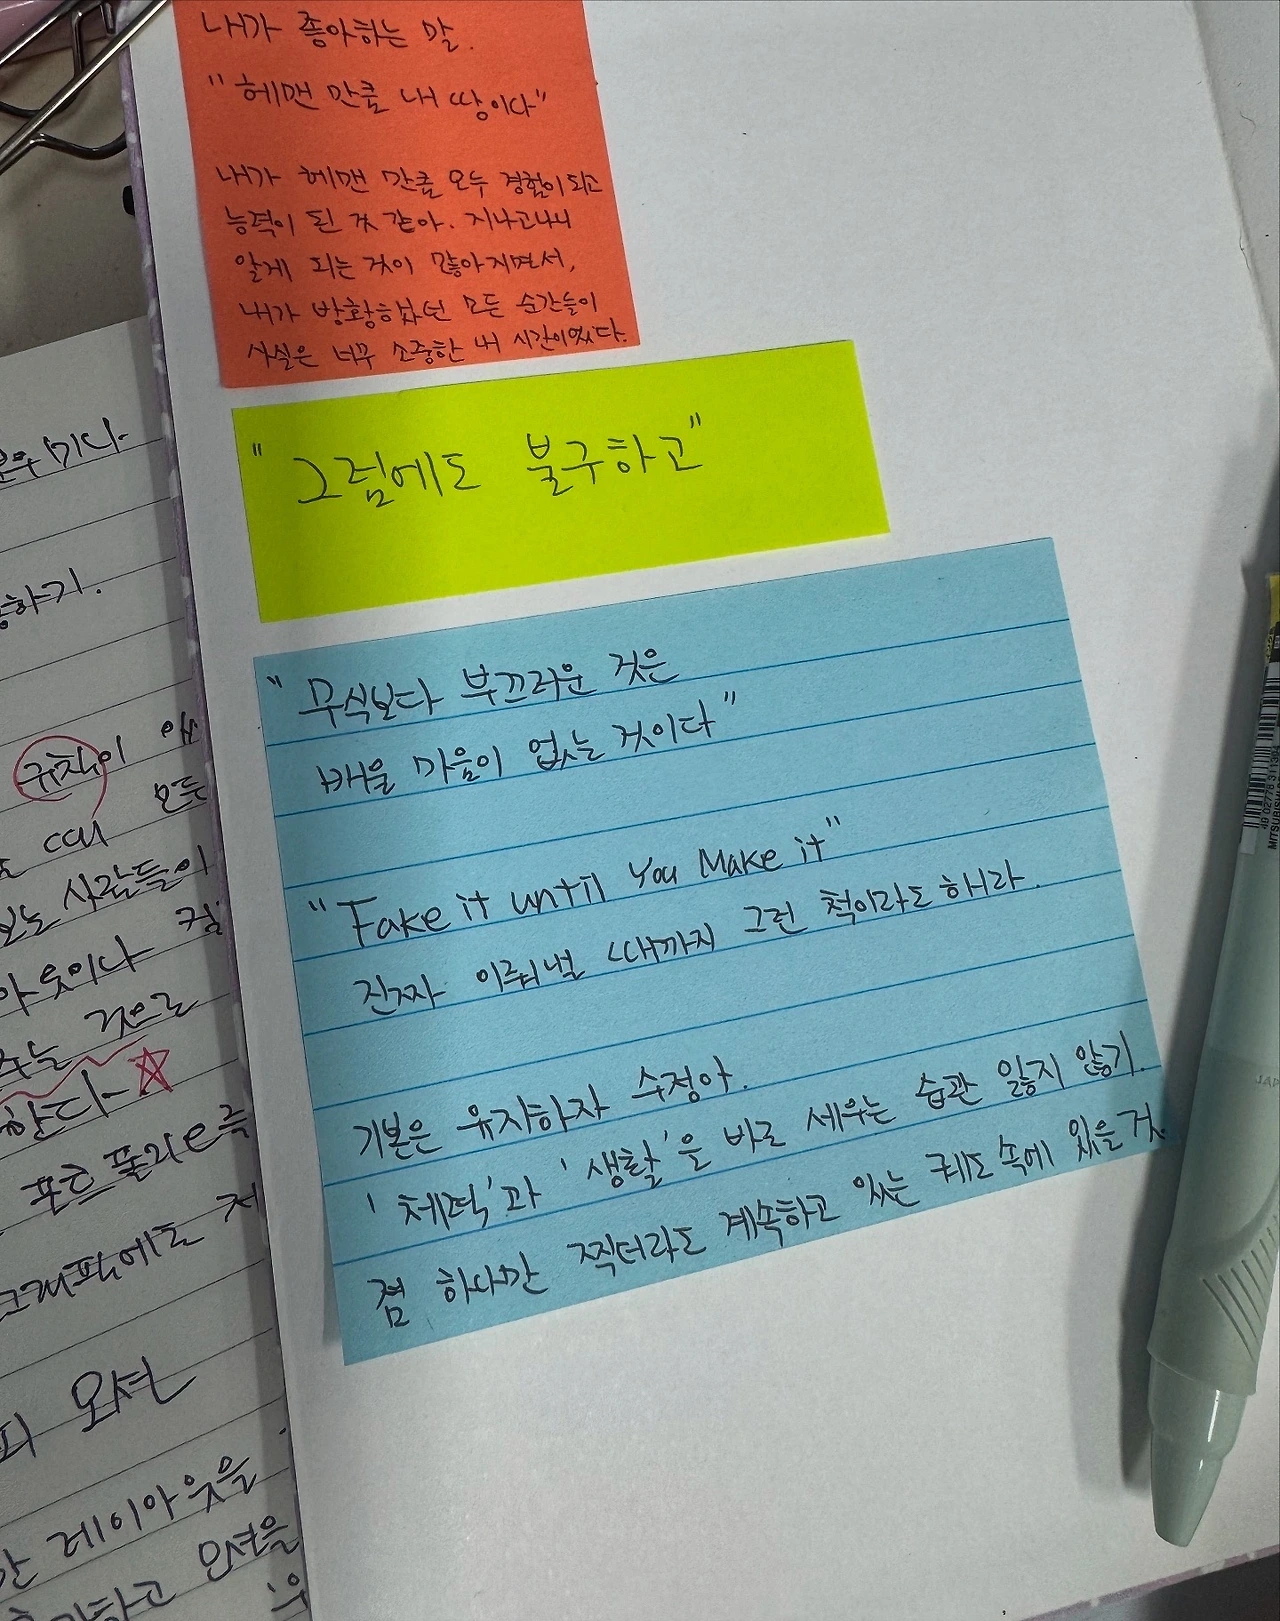 내가 좋아하는 말.
"헤맨 만큼 내 땅이다"
내가 헤맨 만큼 모두 경험이 되고
능력이 된 것 같아. 지나고나니
알게 되는 것이 많아지면서,
내가 방황했던 모든 순간들이
사실은 너무 소중한 내 시간이었다.
"그럼에도 불구하고"
"무식보다 부끄러운 것은
배울 마음이 없는 것이다"
"Fake it until You Make it"
진짜 이뤄낼 때까지 그런 척이라도 해라.
기본은 유지하자 수정아.
'체력'과 '생활'을 바로 세우는 습관 잃지 않기.
점 하나만 찍더라도 계속하고 있는 궤도 속에 있을 것.
하기.
규칙이
때 모든
보는 사람들이
것으로
한다
포트폴리오 즉
오션
레이아웃을
하고 오션을
MITSUBIS
JAP